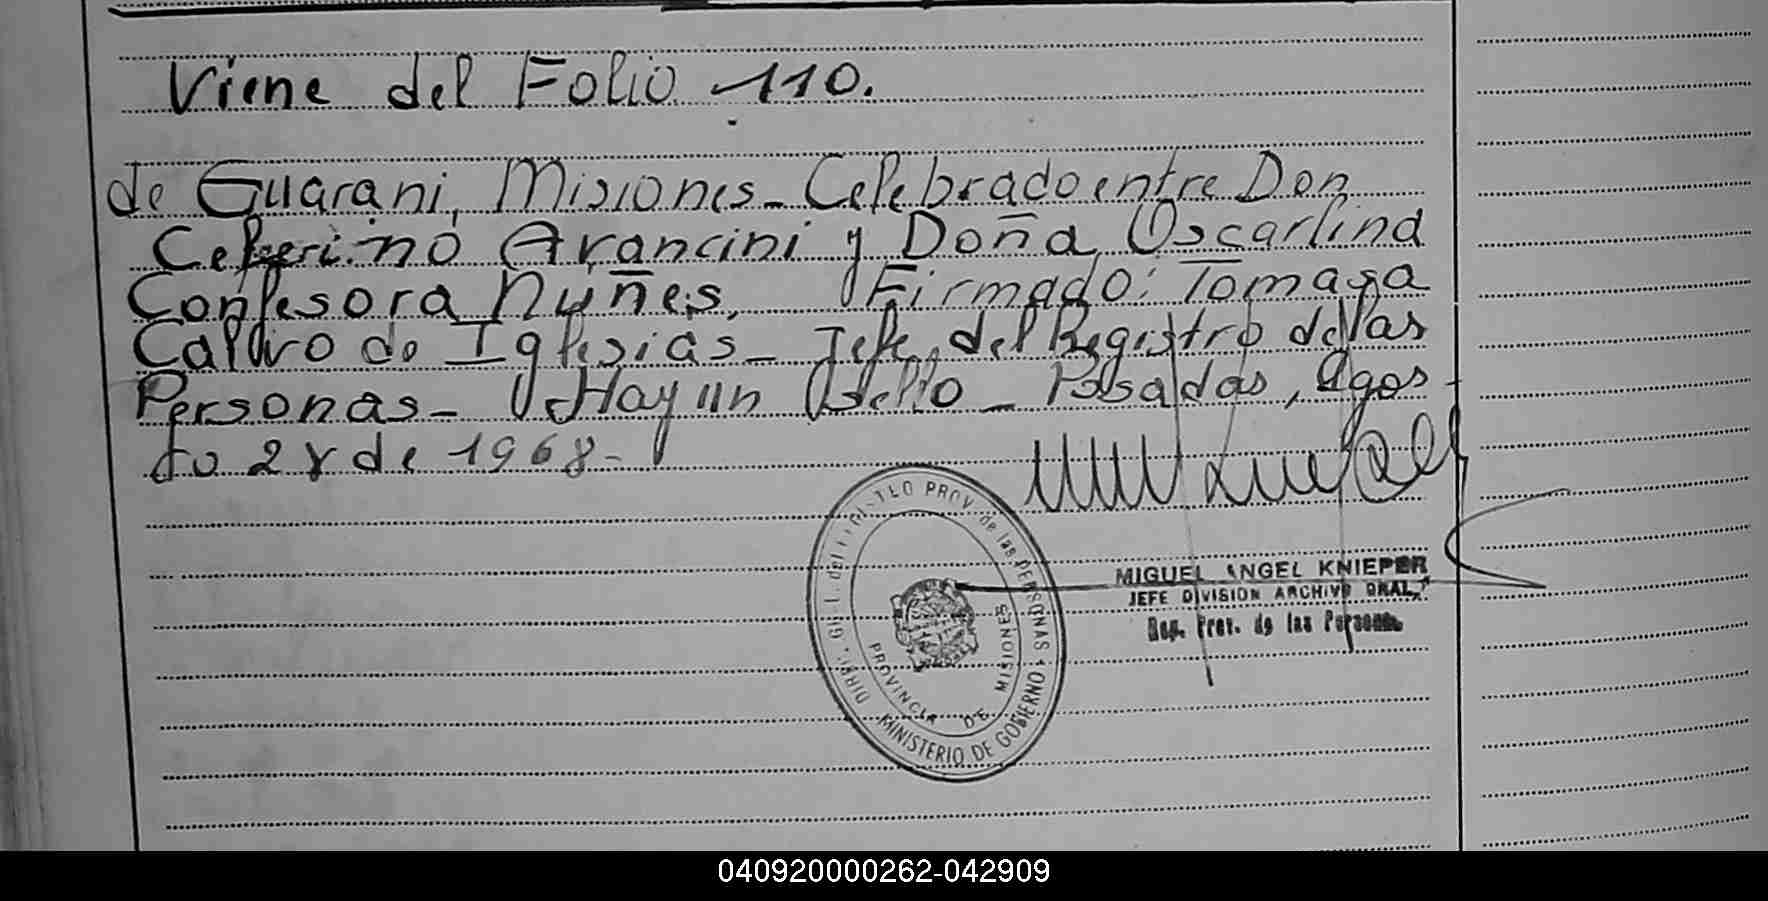 Viene del Folio 110.
de Guarani, Misiones_ Celebrado entre Don
Ceferino Arancini y Doña Oscarlina
Confesora Nuñes, Firmado: Tomasa
Calvo de Iglesias_ Jefe, del Registro de las
Personas_ Hay un Sello_ Posadas, Agos-
to 28 de 1968-
DIRC. GRAL. del REGISTRO PROV. de las PERSONAS
MINISTERIO DE GOBIERNO
PROVINCIA DE MISIONES
MIGUEL ANGEL KNIEPER
JEFE DIVISION ARCHIVO GRAL.
Reg. Prov. de las Personas
040920000262-042909